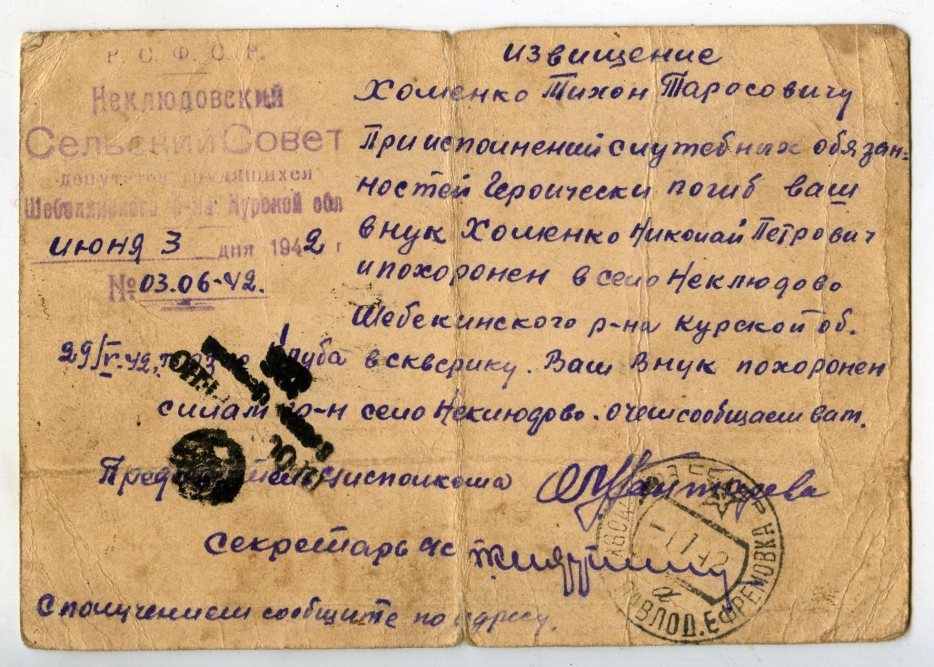 Р. С. Ф. С. Р.
Неклюдовский
Сельский Совет
депутатов трудящихся
Шебекинского р-на Курской обл
июня 3 дня 1942 г
№ 03.06-42.
извищение
Хоменко Тихон Тарасовичу
При исполнений служебных обязан=
ностей Героически погиб ваш
внук Хоменко Николай Петрович
и похоронен в село Неклюдово
Шебекинского р-на Курской об.
29/V.42. клуба в скверику. Ваш Внук похоронен
силам р-н село Неклюдово. о чем сообщаем вам.
Председатель исполкома
Секретарь ис
С получением сообщите по адресу.
ПАВЛОД. ЕФРЕМОВКА